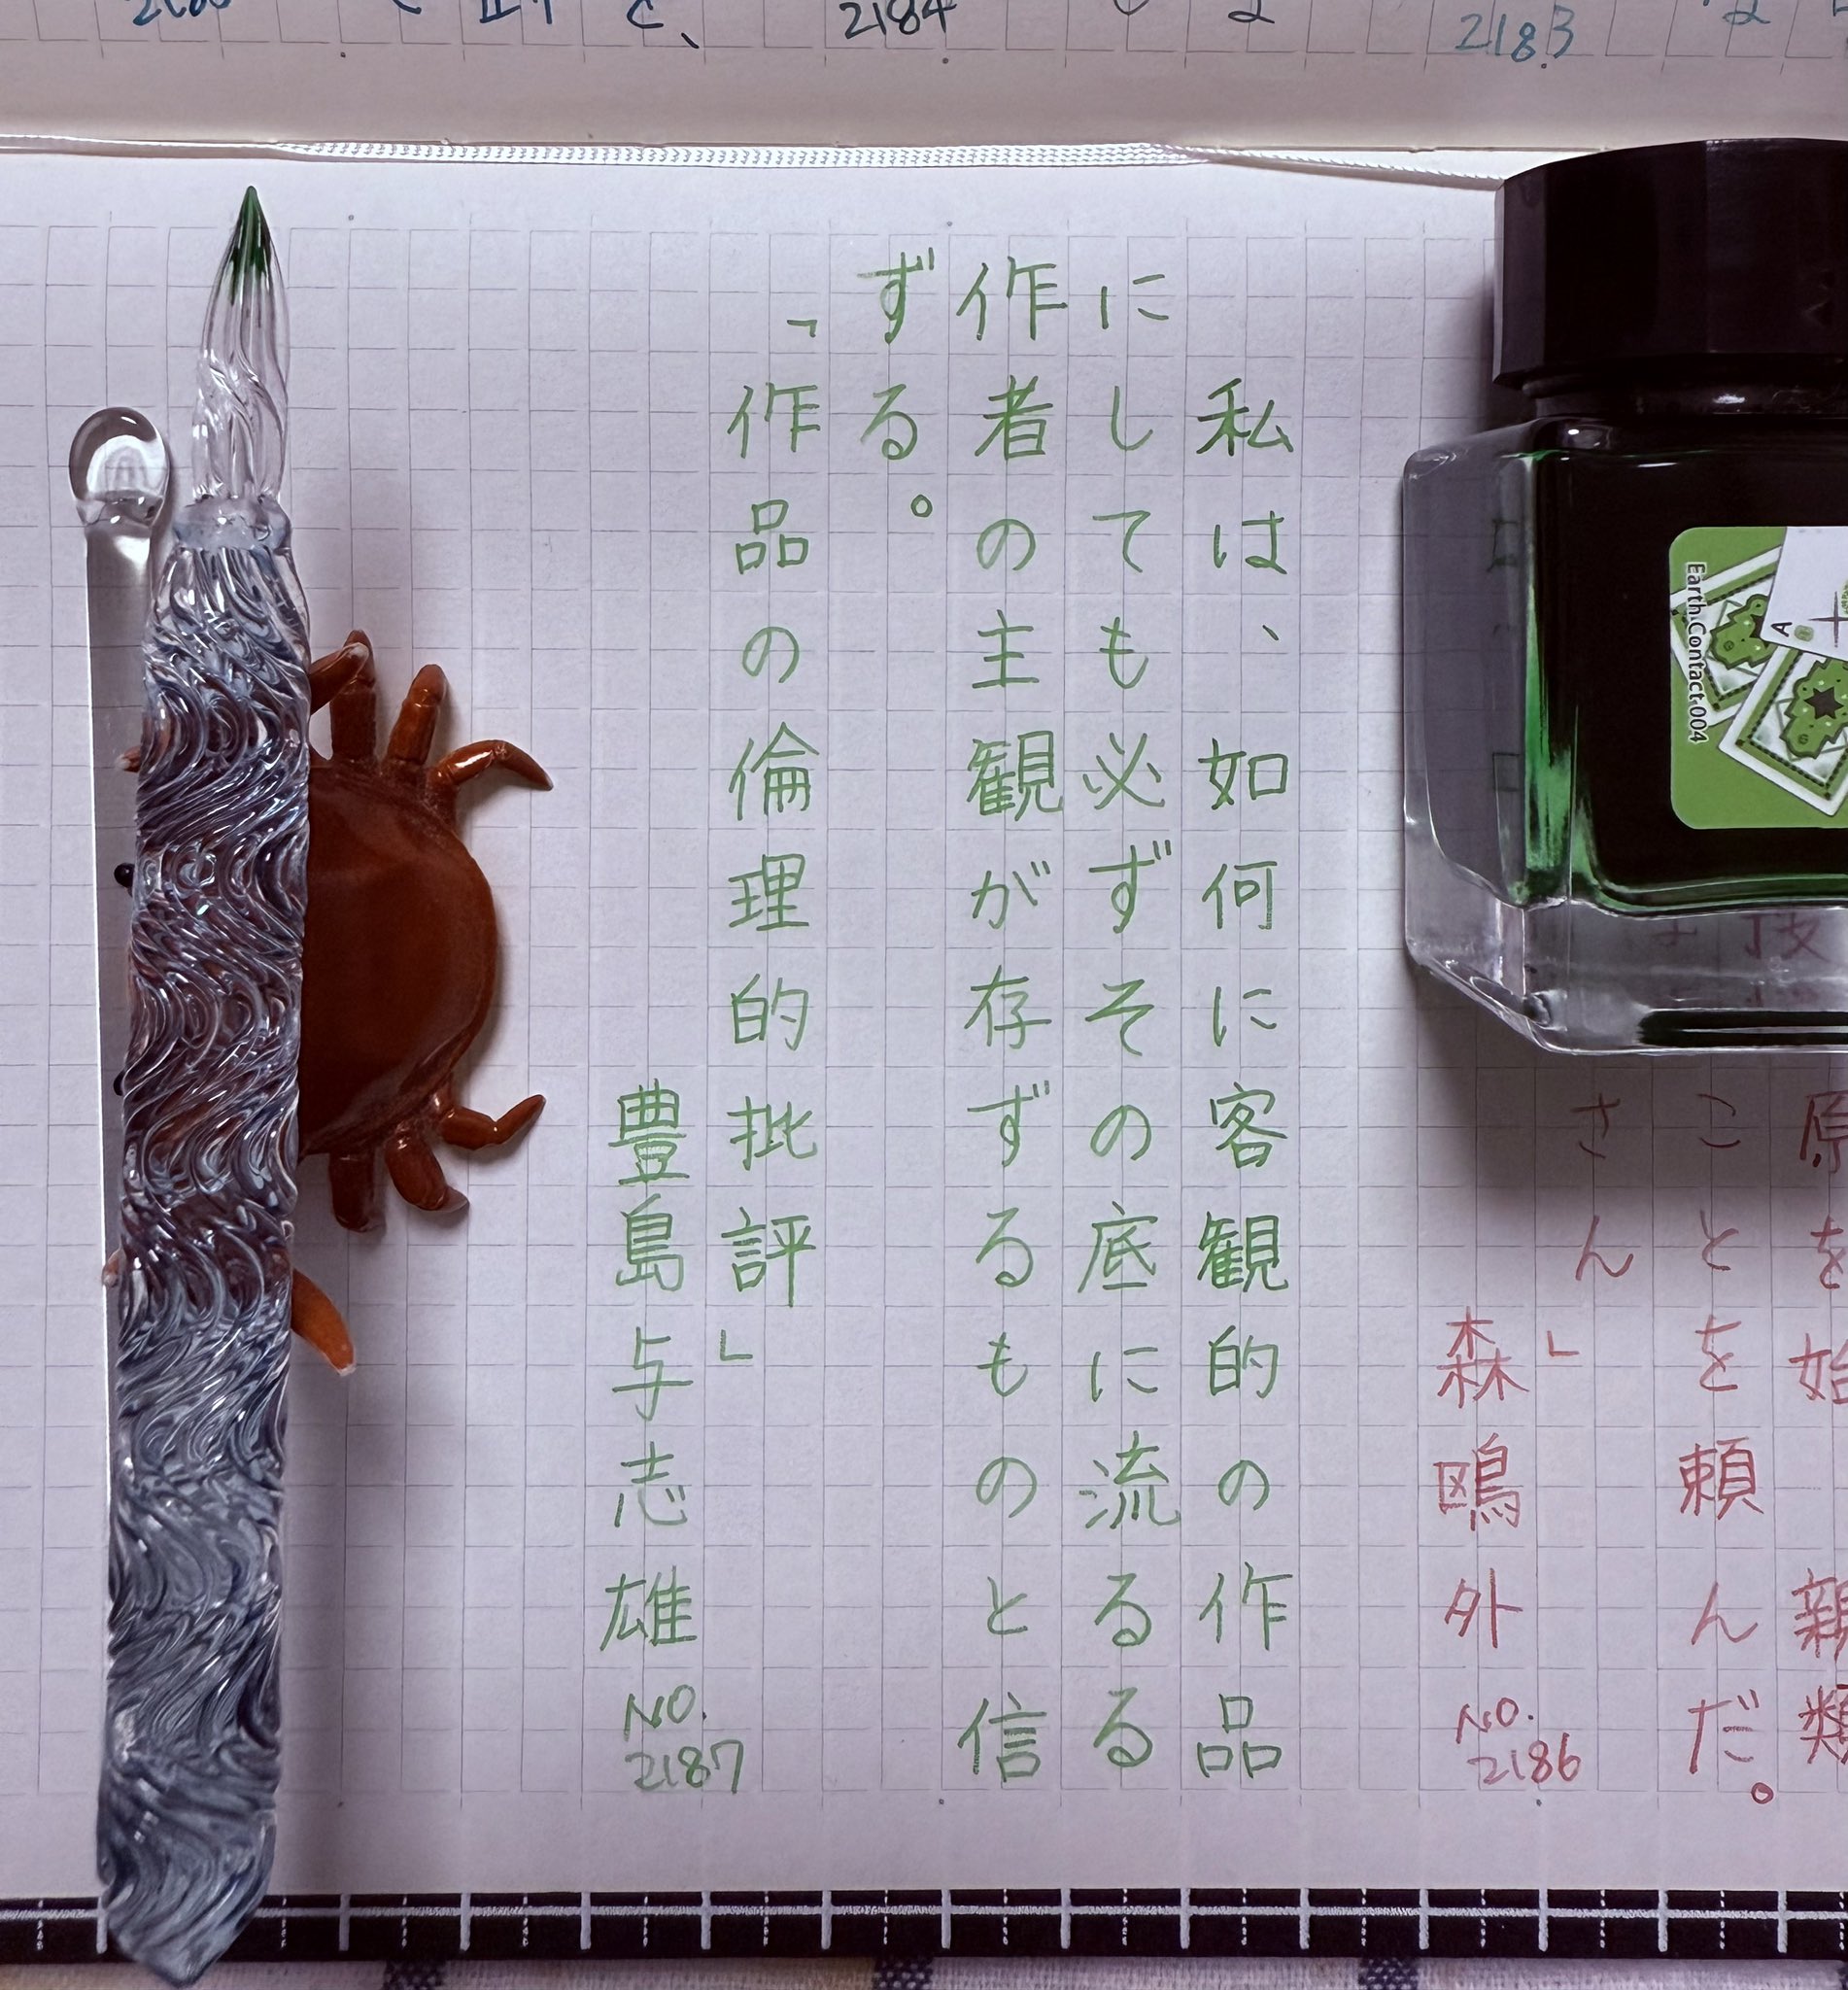 2184
2183
原を始 親類
ことを頼んだ。
さん」
森鴎外
NO.
2186
Earth Contact.004
A
私は、如何に客観的の作品
にしても必ずその底に流るる
作者の主観が存ずるものと信
ずる。
「作品の倫理的批評」
豊島与志雄
NO.
2187